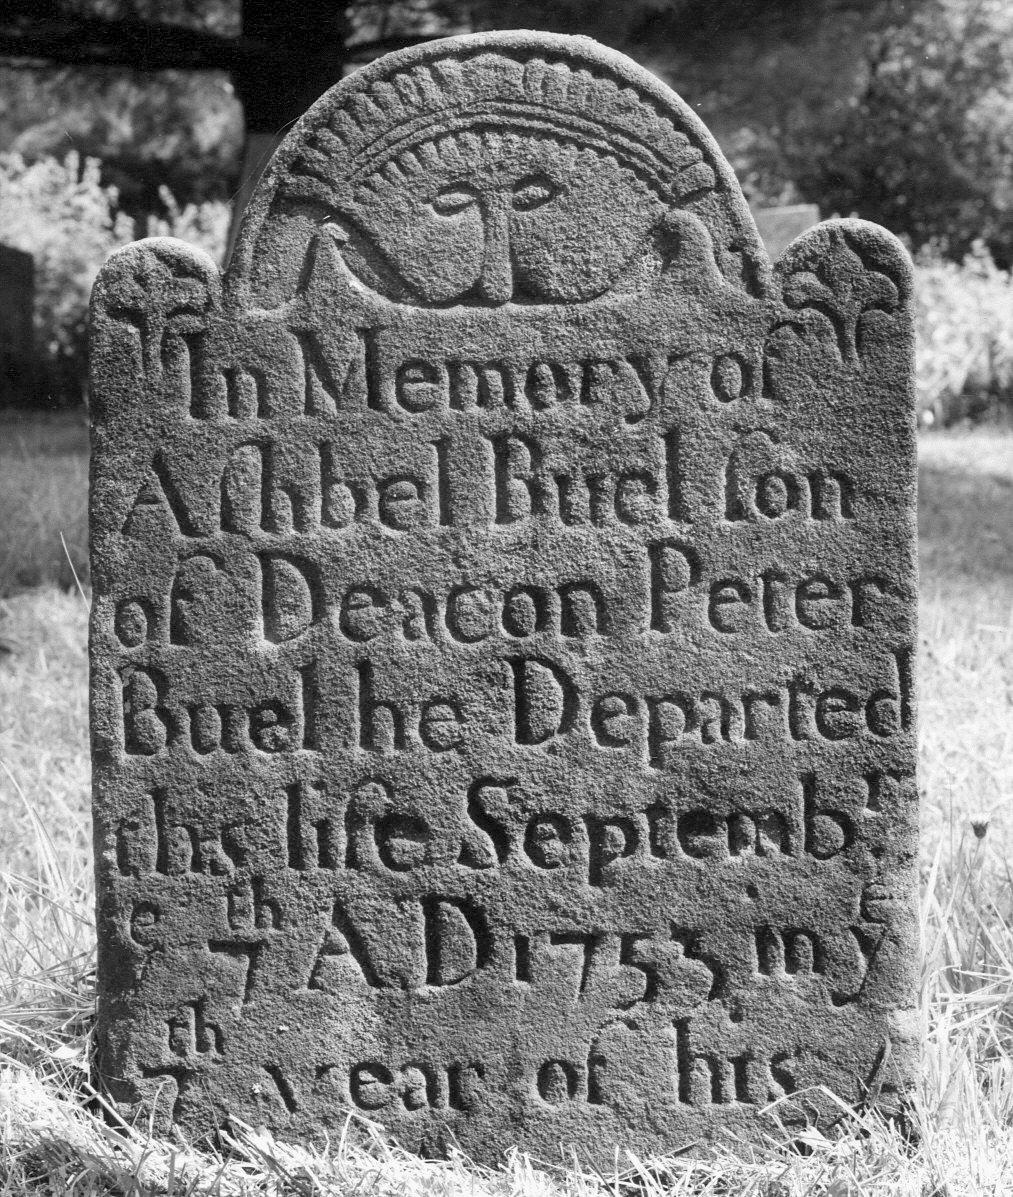 In Memory of
Aſhbel Buel ſon
of Deacon Peter
Buel he Departed
this life Septembr
ye 7th AD 1753 in ye
7th year of his